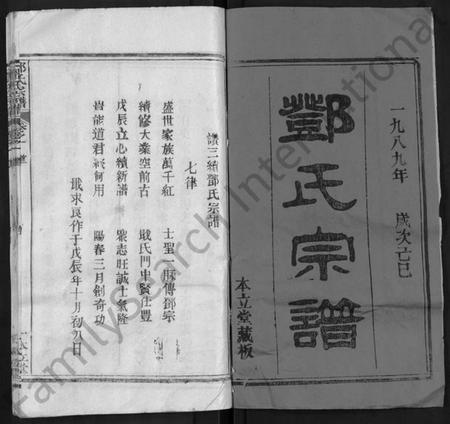 一九八九年 歲次亡已
鄧氏宗譜
本立堂藏板
讃三續鄧氏宗譜
七律
盛世家族萬千紅 士聖一脉傳鄧宗
續修大業空前古 戢氏門中賢仕豐
戊辰立心續新譜 衆志旺誠士氣隆
貴能道君 何用 陽春三月創奇功
戢求良作于戊辰年十月初九日
鄧氏宗譜
FamilySearch International